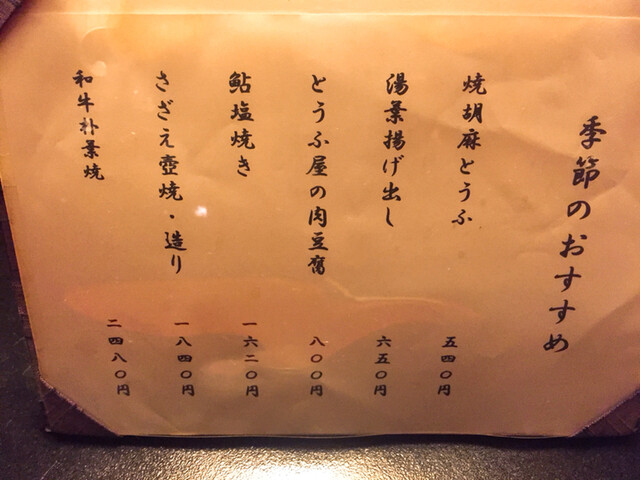 季節のおすすめ
焼胡麻とうふ 五四〇円
湯葉揚げ出し 六五〇円
とうふ屋の肉豆腐 八〇〇円
鮎塩焼き 一六二〇円
さざえ壺焼・造り 一八四〇円
和牛朴葉焼 二四八〇円